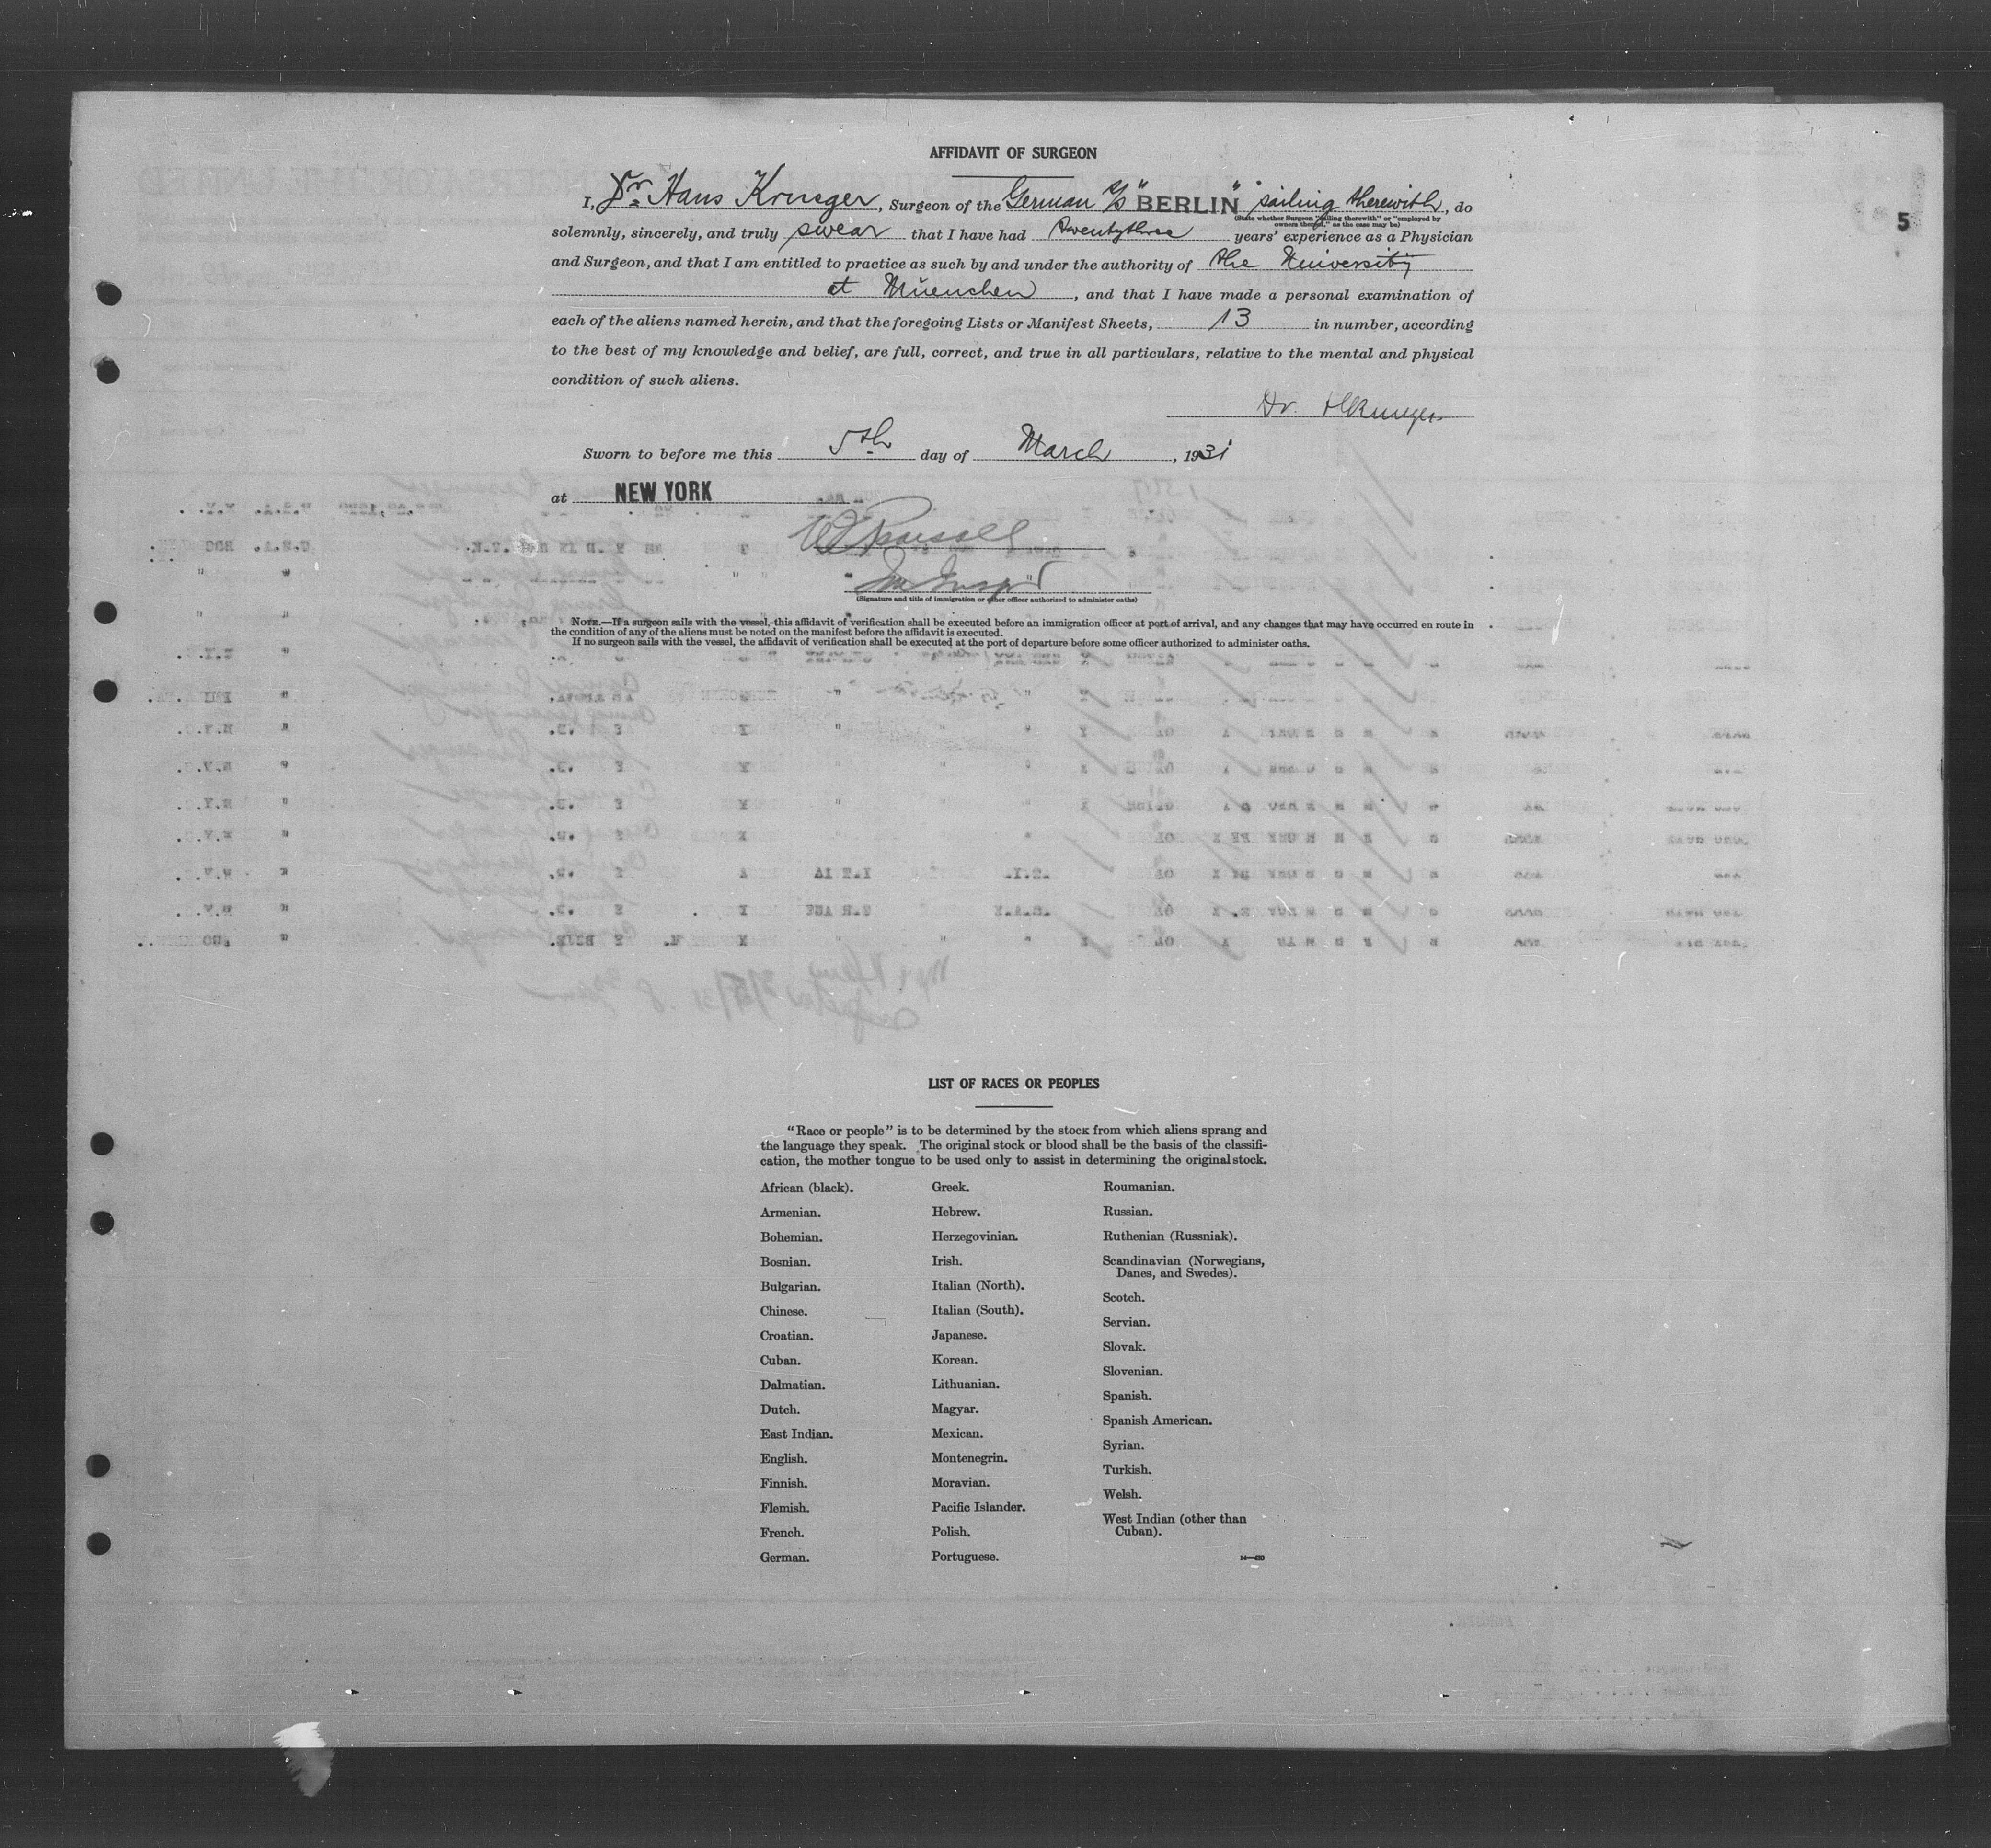 5
AFFIDAVIT OF SURGEON
I, Dr Hans Krueger, Surgeon of the German S/S "BERLIN" sailing therewith, do
(State whether Surgeon "sailing therewith" or "employed by
owners thereof," as the case may be)
solemnly, sincerely, and truly swear that I have had twentythree years' experience as a Physician
and Surgeon, and that I am entitled to practice as such by and under the authority of the University
at Müenchen, and that I have made a personal examination of
each of the aliens named herein, and that the foregoing Lists or Manifest Sheets, 13 in number, according
to the best of my knowledge and belief, are full, correct, and true in all particulars, relative to the mental and physical
condition of such aliens.
Dr. HKrueger.
Sworn to before me this 5th day of March, 1931
at NEW YORK
(Signature and title of immigration or other officer authorized to administer oaths)
NOTE.—If a surgeon sails with the vessel, this affidavit of verification shall be executed before an immigration officer at port of arrival, and any changes that may have occurred en route in
the condition of any of the aliens must be noted on the manifest before the affidavit is executed.
If no surgeon sails with the vessel, the affidavit of verification shall be executed at the port of departure before some officer authorized to administer oaths.
LIST OF RACES OR PEOPLES
"Race or people" is to be determined by the stock from which aliens sprang and
the language they speak. The original stock or blood shall be the basis of the classifi-
cation, the mother tongue to be used only to assist in determining the original stock.
African (black).
Armenian.
Bohemian.
Bosnian.
Bulgarian.
Chinese.
Croatian.
Cuban.
Dalmatian.
Dutch.
East Indian.
English.
Finnish.
Flemish.
French.
German.
Greek.
Hebrew.
Herzegovinian.
Irish.
Italian (North).
Italian (South).
Japanese.
Korean.
Lithuanian.
Magyar.
Mexican.
Montenegrin.
Moravian.
Pacific Islander.
Polish.
Portuguese.
Roumanian.
Russian.
Ruthenian (Russniak).
Scandinavian (Norwegians,
Danes, and Swedes).
Scotch.
Servian.
Slovak.
Slovenian.
Spanish.
Spanish American.
Syrian.
Turkish.
Welsh.
West Indian (other than
Cuban).